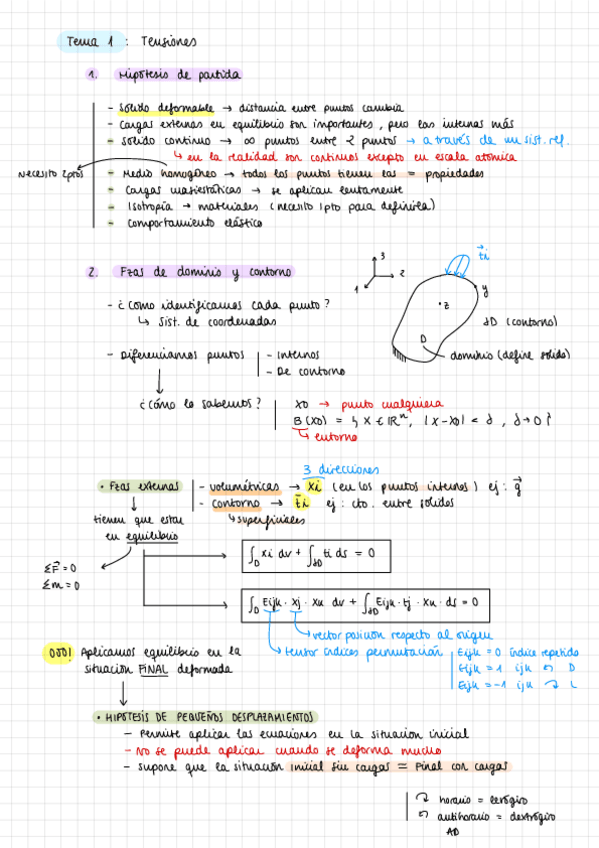 Tema 1 : Tensiones
1. Hipótesis de partida
- Sólido deformable → distancia entre puntos cambia
- Cargas externas en equilibrio son importantes, pero las internas más
- Sólido continuo → ∞ puntos entre 2 puntos → a través de un sist. ref.
↳ en la realidad son continuos excepto en escala atómica
Necesito 2ptos
- Medio homogéneo → todos los puntos tienen las = propiedades
- Cargas → se aplican lentamente
- Isotropía → materiales (necesito 1pto para definirla)
- Comportamiento elástico
2. Fzas de dominio y contorno
- ¿Cómo identificamos cada punto?
↳ Sist. de coordenadas
3
2
1
ti
y
z
D
∂D (contorno)
dominio (define sólido)
- Diferenciamos puntos | - Internos
- De contorno
¿Cómo lo sabemos? | x0 → punto cualquiera
B(x0) = { x ∈ ℝⁿ, |x-x0| < δ, δ→0 }
↳ entorno
3 direcciones
• Fzas externas | - volumétricas → Xi (en los puntos internos) ej: g
- contorno → ti ej: cto. entre sólidos
↳ superficiales
tienen que estar
en equilibrio
ΣF = 0
Σm = 0
∫D xi dv + ∫∂D ti ds = 0
∫D Eijk · xj · Xk dv + ∫∂D Eijk · tj · xk · ds = 0
↳ vector posición respecto al origen
↳ tensor índices permutación | Eijk = 0 índice repetido
Eijk = 1 ijk ↶ D
Eijk = -1 ijk ↷ L
OJO! Aplicamos equilibrio en la
situación FINAL deformada
• HIPÓTESIS DE PEQUEÑOS DESPLAZAMIENTOS
- Permite aplicar las ecuaciones en la situación inicial
- No se puede aplicar cuando se deforma mucho
- Supone que la situación inicial sin cargas ≃ Final con cargas
↷ horario = levógiro
↶ antihorario = dextrógiro
AD